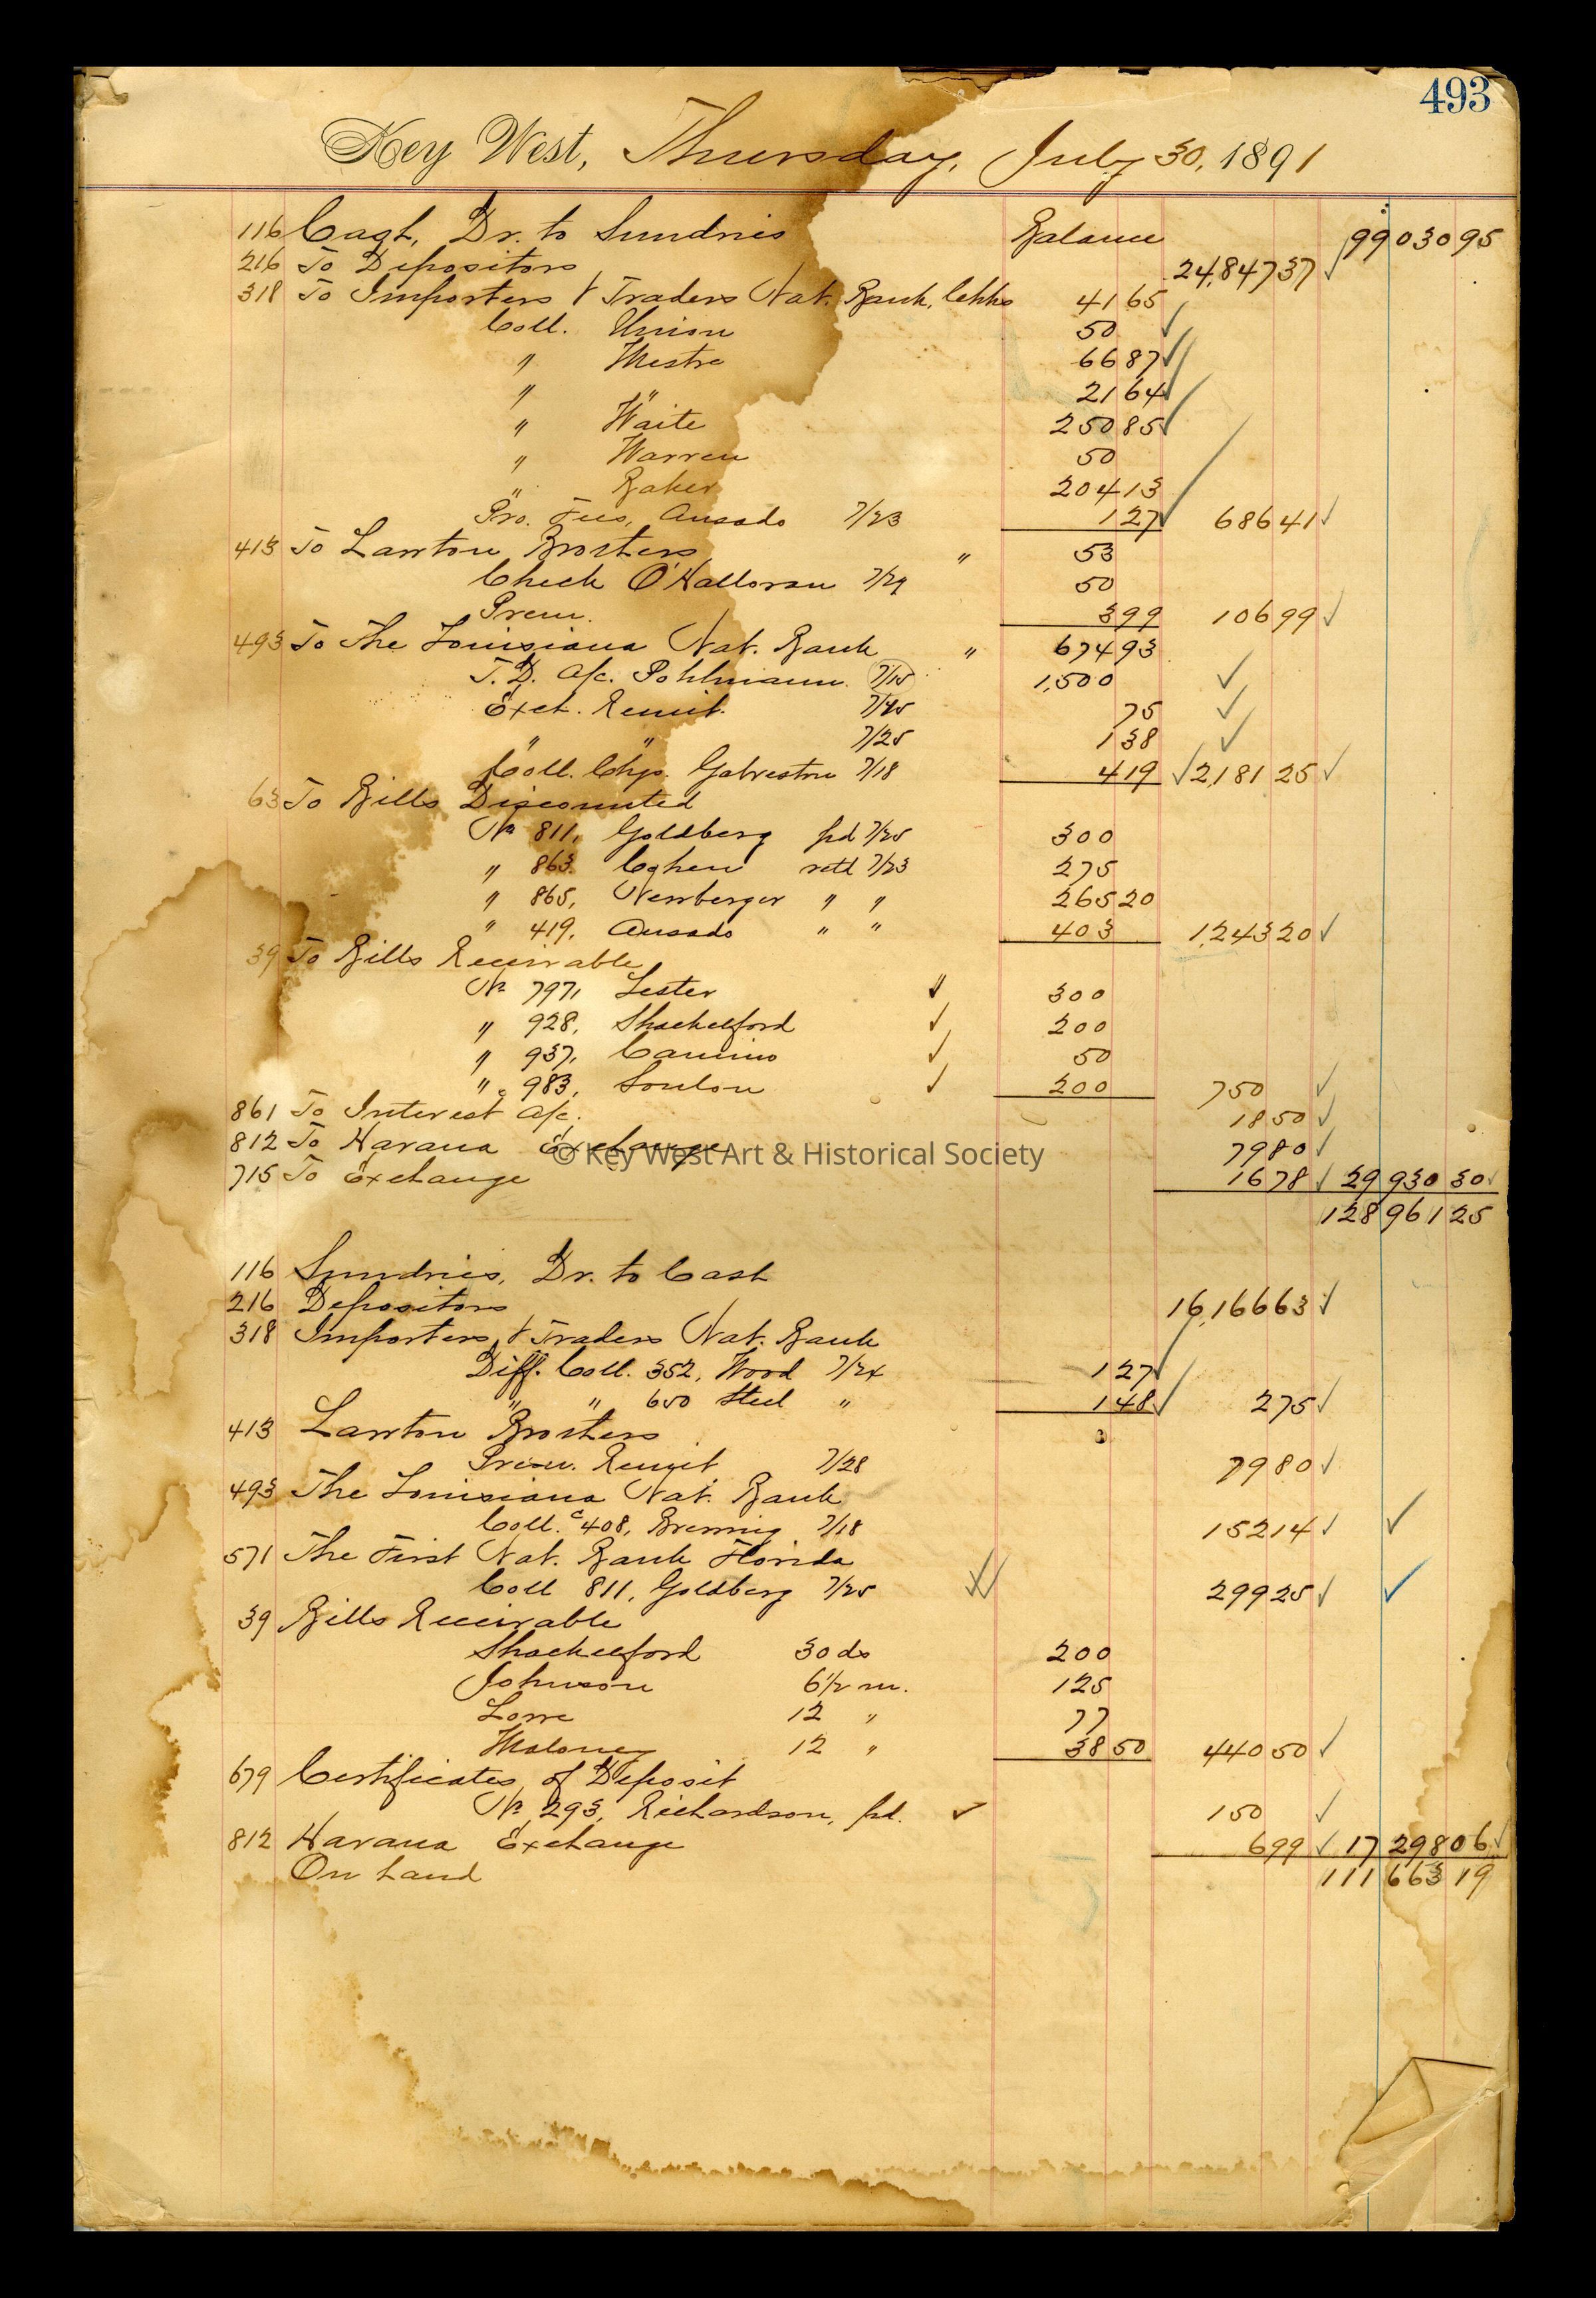 493
Key West, Thursday, July 30, 1891
116 Cash, Dr. to Sundries Balance 99 030 95
216 To Depositors 24,847 37
318 To Importers & Traders Nat. Bank, Cchks 41 65
Coll. Union 50
" Mestre 66 87
" " 21 64
" Waite 250 85
" Warren 50
" Baker 204 13
Pro. Fees, Ansado 7/23 1 27 686 41
413 To Lawton Brothers " 53
Check O'Halloran 7/29 50
Prem. 3 99 106 99
493 To The Louisiana Nat. Bank " 674 93
T. D. a/c. Pohlmann 7/15 1,500
Exch. Remit. 7/25 75
" " 7/25 1 38
Coll. Chgs. Galveston 7/18 4 19 2,181 25
63 To Bills Discounted
No 811, Goldberg pd 7/25 300
" 863. Cohen retd 7/23 275
" 865, Newberger " " 265 20
" 419, Ansado " " 403 1,243 20
39 To Bills Receivable
No 797, Lester 300
" 928, Shackelford 200
" 937, Camino 50
" 983, Soulon 200 750
861 To Interest a/c. 18 50
812 To Havana Exchange 79 80
© Key West Art & Historical Society
715 To Exchange 16 78 29 930 30
128 961 25
116 Sundries, Dr. to Cash
216 Depositors 16,166 63
318 Importers & Traders Nat. Bank
Diff. Coll. 352, Wood 7/24 1 27
" " 650 Steel " 1 48 2 75
413 Lawton Brothers
Prem. Remit 7/28 79 80
493 The Louisiana Nat. Bank
Coll. c 408, Brennig 7/18 152 14
571 The First Nat. Bank Florida
Coll 811, Goldberg 7/25 299 25
39 Bills Receivable
Shackelford 30 ds 200
Johnson 6 1/2 m. 125
Lowe 12 " 77
Maloney 12 " 38 50 440 50
679 Certificates of Deposit
No 293, Richardson, pd. 150
812 Havana Exchange 6 99 17 298 06
On hand 111 663 19